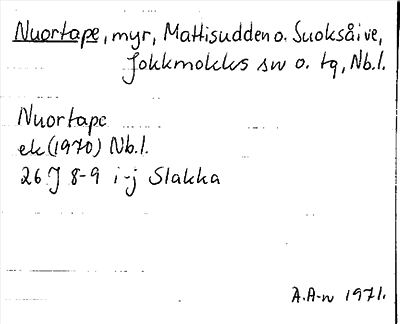 Nuortape, myr, Mattisudden o. Suoksåive,
Jokkmokks sn o. tg, Nb.l.
Nuortape
ek (1970) Nb.l.
26 J 8-9 i-j Slakka
A.A-n 1971.